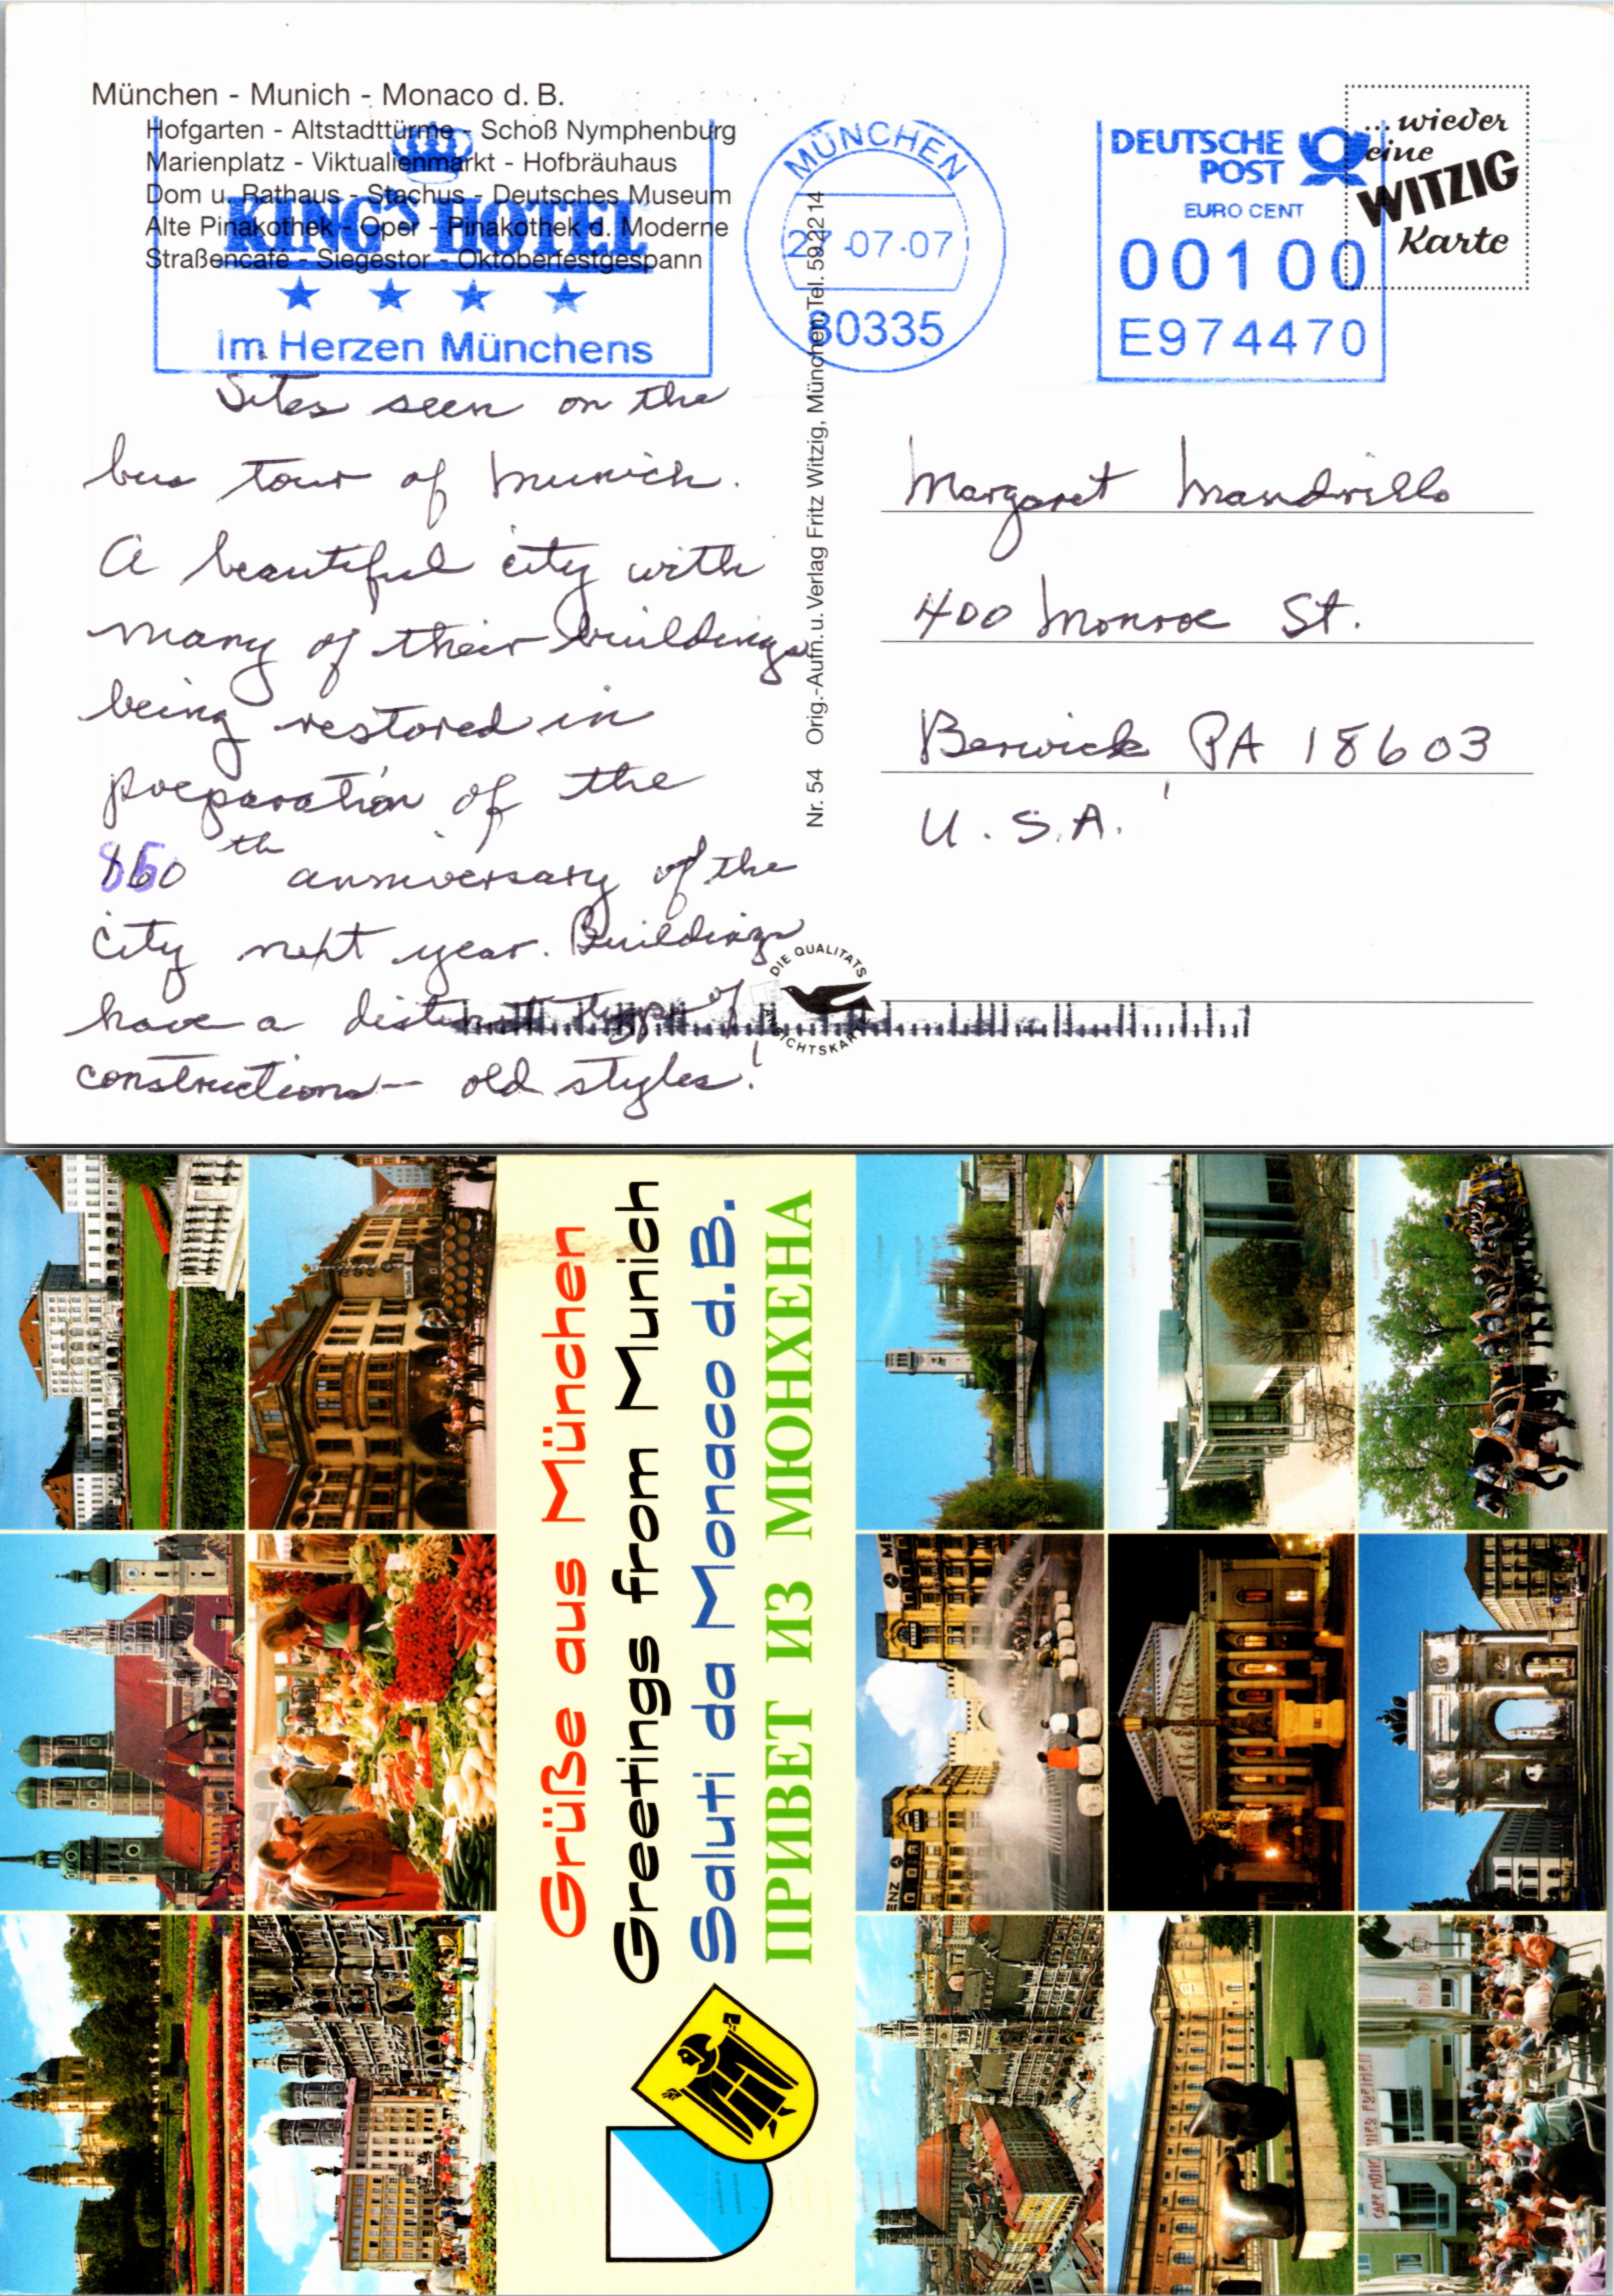 München - Munich - Monaco d. B.
Hofgarten - Altstadttürme - Schoß Nymphenburg
Marienplatz - Viktualienmarkt - Hofbräuhaus
Dom u. Rathaus - Stachus - Deutsches Museum
Alte Pinakothek - Oper - Pinakothek d. Moderne
Straßencafé - Siegestor - Oktoberfestgespann
KING'S HOTEL
im Herzen Münchens
MÜNCHEN
27.07.07
80335
DEUTSCHE
POST
EURO CENT
00100
E974470
... wieder
eine
WITZIG
Karte
Sites seen on the
bus tour of Munich.
A beautiful city with
many of their buildings
being restored in
preparation of the
850th anniversary of the
city next year. Buildings
have a distinct type of
constructions - old styles!
Nr. 54 Orig.-Aufn. u. Verlag Fritz Witzig, München, Tel. 592214
Margaret Mandrillo
400 Monroe St.
Berwick PA 18603
U.S.A.
DIE QUALITÄTS
ANSICHTSKARTE
Grüße aus München
Greetings from Munich
Saluti da Monaco d.B.
ПРИВЕТ ИЗ МЮНХЕНА